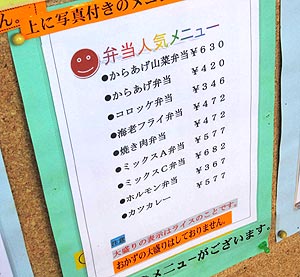 ん。
上に写真付きのメニュー
弁当人気メニュー
●からあげ山菜弁当 ￥630
●からあげ弁当 ￥420
●コロッケ弁当 ￥346
●海老フライ弁当 ￥472
●焼き肉弁当 ￥472
●ミックスA弁当 ￥577
●ミックスC弁当 ￥682
●ホルモン弁当 ￥367
●カツカレー ￥577
注意
大盛りの表示はライスのことです。
おかずの大盛りはしておりません。
メニューがございます。